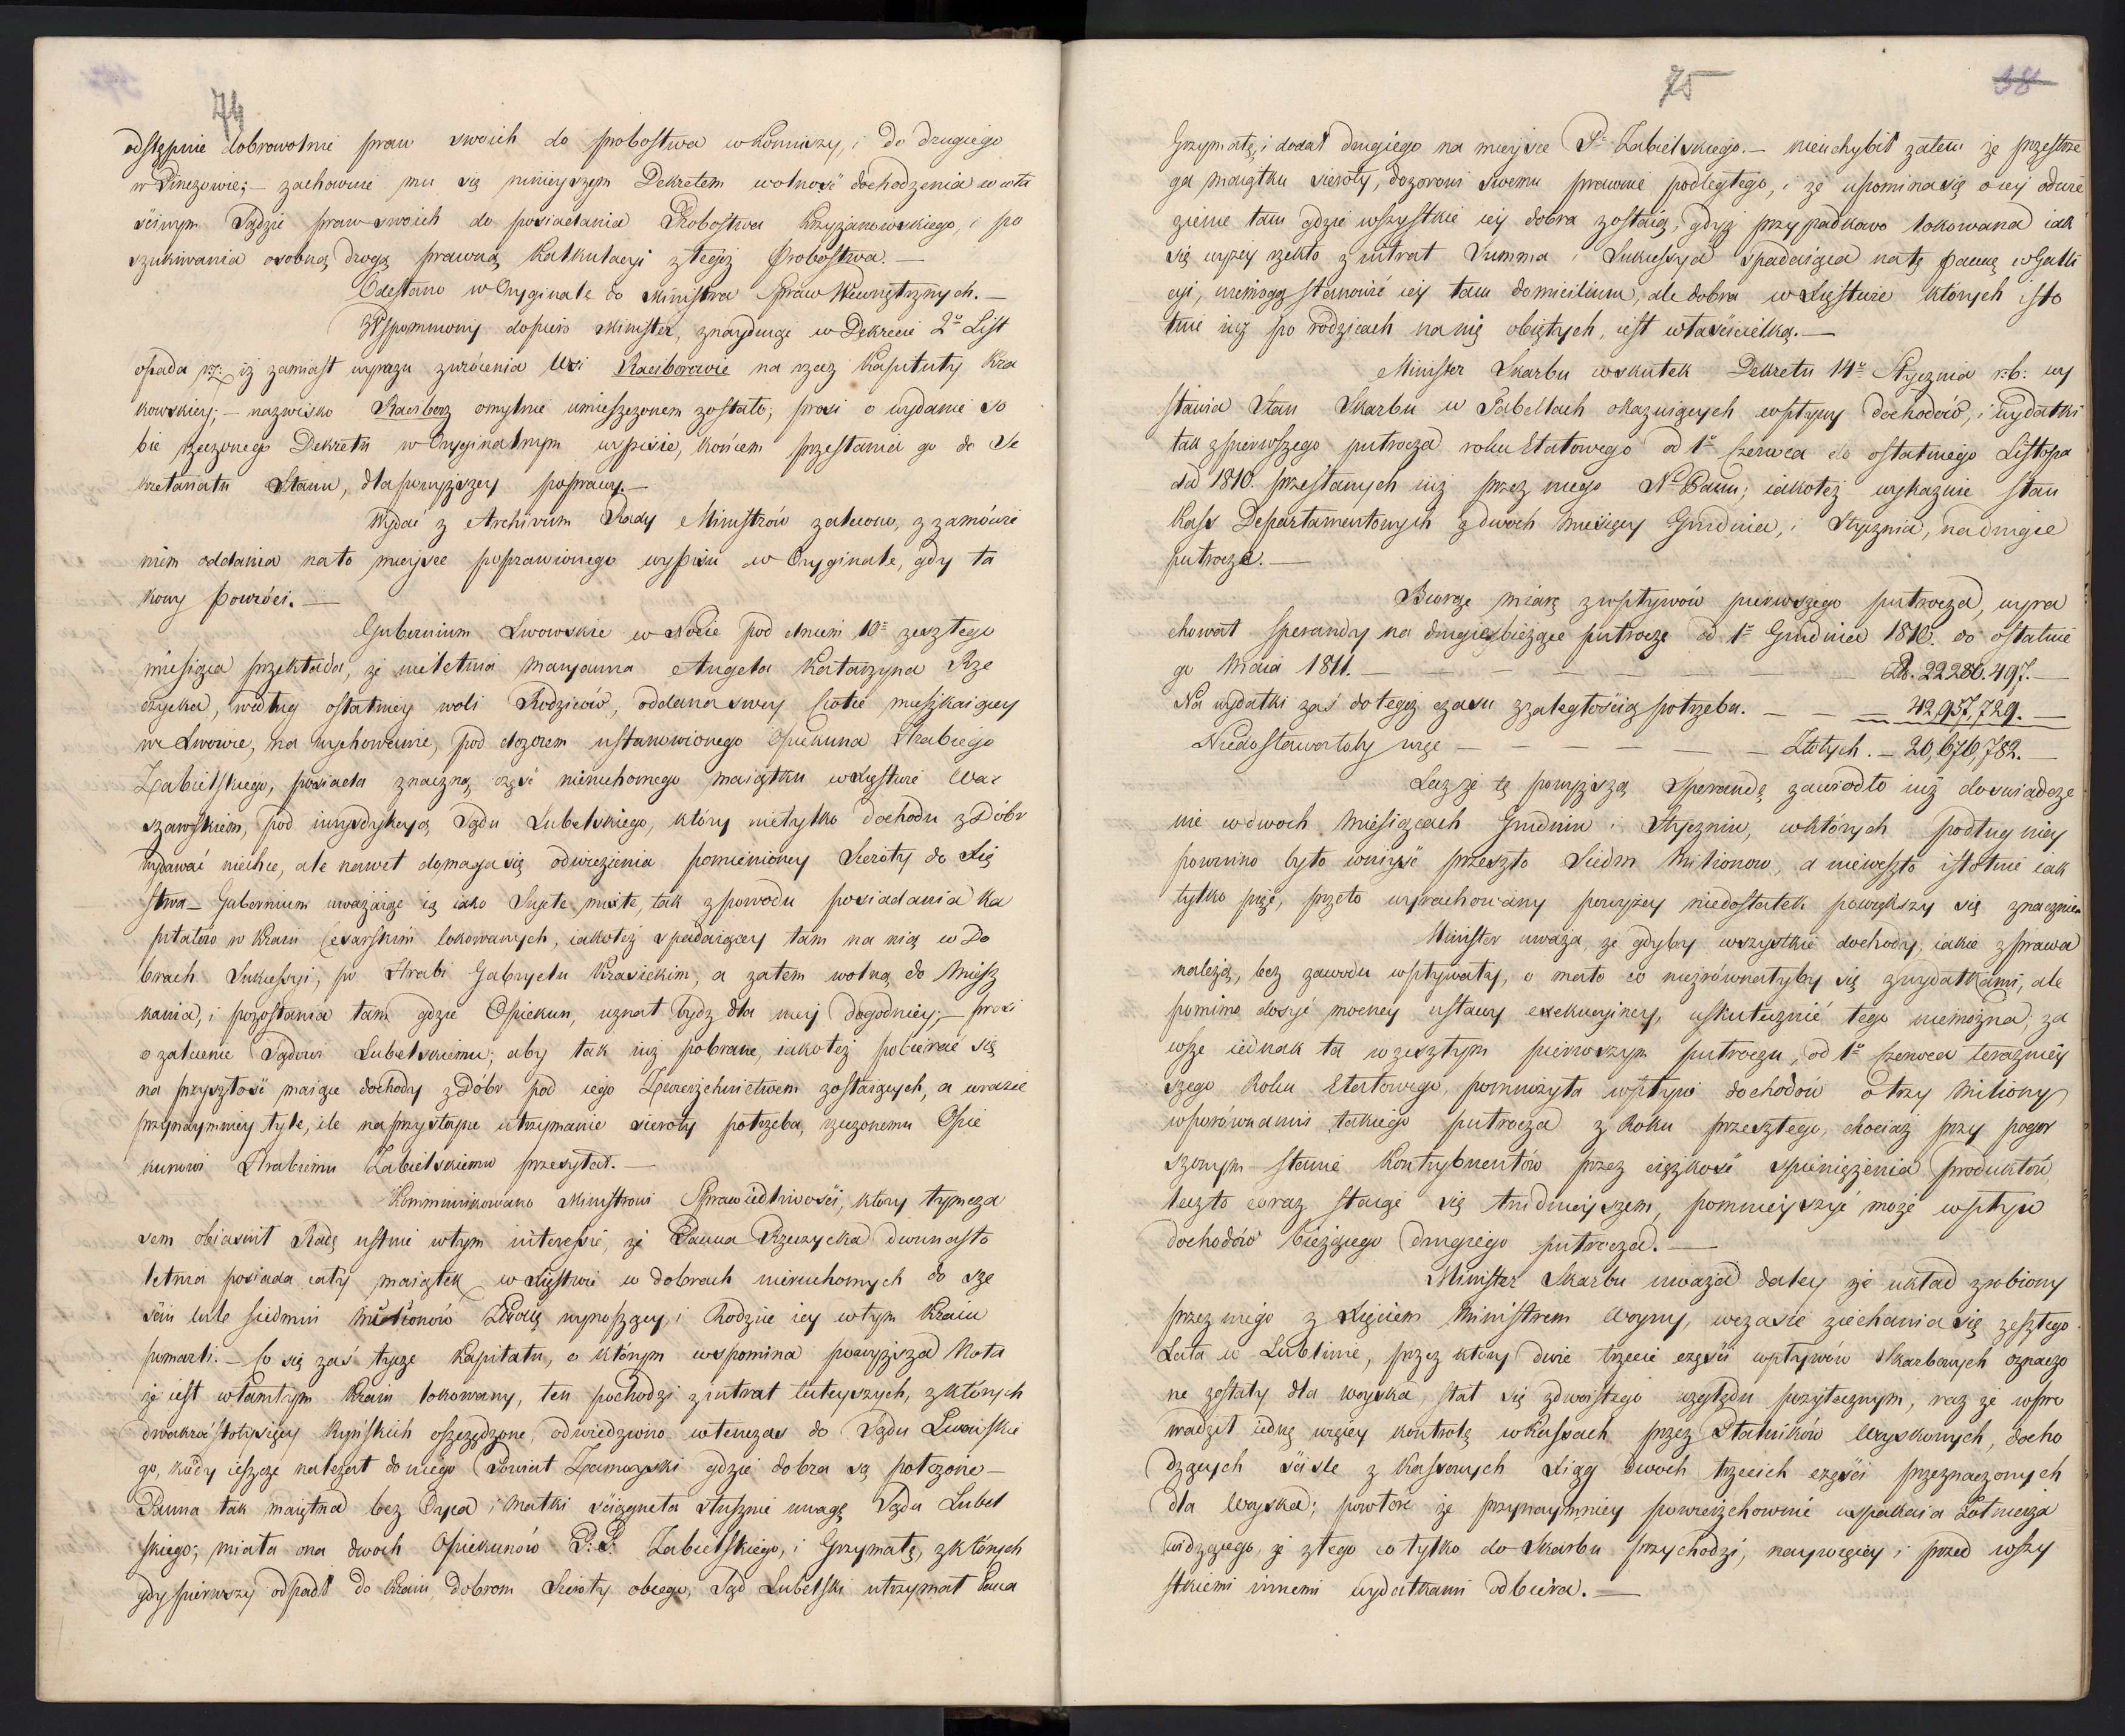 74
odstępuie dobrowolnie praw swoich do probostwa w Koniuszy, i do drugiego
w Pinczowie; – zachowuie mu się ninieyszym Dekretem wolność dochodzenia w wła
ściwym Sądzie praw swoich do posiadania Probostwa Krzyżanowskiego, i po
szukiwania osobną drogą prawną Kalkulacyi z tegoż Probostwa. –
Odesłano w Oryginale do Ministra Spraw Wewnętrznych. –
Wspomniony dopiero Minister, znayduiąc w Dekrecie 2o List
opada r.z: iż zamiast wyrazu zwrócenia Wsi Raciborowie na rzecz Kapituły Kra
kowskiey; – nazwisko Racibórz omylnie umieszczonem zostało; prosi o wydanie so
bie rzeczonego Dekretu w Oryginalnym wypisie, końcem przesłania go do Se
kretariatu Stanu, dla powyższey poprawy. –
Wydać z Archivum Rady Ministrów zalecono, z zamówie
niem oddania na to mieysce poprawionego wypisu w Oryginale, gdy ta
kowy powróci. –
Gubernium Lwowskie w Nocie pod dniem 10o zeszłego
miesiąca przekłada, że nieletnia Maryanna Angela Katarzyna Rze
czycka, według ostatniey woli Rodziców, oddana swey Ciotce mieszkaiącey
we Lwowie, na wychowanie, pod dozorem ustanowionego Opiekuna Hrabiego
Zabielskiego, posiada znaczną część nieruchomego maiątku w Xięstwie War
szawskiem, pod iuryzdykcyą Sądu Lubelskiego, który nietylko dochodu z Dóbr
wydawać niechce, ale nawet domaga się odwiezienia pomienioney Sieroty do Xię
stwa – Gubernium uważaiąc ią iako Sujete mixte, tak z powodu posiadania Ka
pitałów w Kraiu Cesarskim lokowanych, iakoteż spadaiącey tam na nią w Do
brach Sukcessyi, po Hrabi Gabryelu Krasickim, a zatem wolną do Miesz
kania, i pozostania tam gdzie Opiekun, uznał bydź dla niey dogodniey; – prosi
o zalecenie Sądowi Lubelskiemu; aby tak iuż pobrane, iakoteż pobierać się
na przyszłość maiące dochody z Dóbr pod iego Zwierzchnictwem zostaiących, a w razie
przynaymniey tyle, ile na przystoyne utrzymanie sieroty potrzeba, rzeczonemu Opie
kunowi Hrabiemu Zabielskiemu przesyłał. –
Kommunikowano Ministrowi Sprawiedliwości, który tymcza
sem obiaśnił Radę ustnie w tym interessie, że Panna Rzeczycka dwunasto
letnia posiada cały maiątek w Xięstwie w dobrach nieruchomych do sze
ściu lub siedmiu Millionów wynoszący, i Rodzice iey w tym Kraiu
pomarli. – Co się zaś tycze Kapitału, o którym wspomina powyższa Nota
że iest w tamtym Kraiu lokowany, ten pochodzi z intrat tuteyszych, z których
dwakroćstotysięcy Ryńskich oszczędzone, odwiedziono wtenczas do Sądu Lwowskie
go, kiedy ieszcze należał do niego Powiat Zamoyski gdzie dobra są położone –
Panna tak maiętna bez Oyca i Matki ściągnęła słusznie uwagę Sądu Lubel
skiego; miała ona dwóch Opiekunów P.P. Zabielskiego, i Grzymałę, z których
gdy pierwszy odpadł do Kraiu dobrom Sieroty obcego, Sąd Lubelski utrzymał Pana
75
38
Grzymałę, i dodał drugiego na mieysce Po Zabielskiego. – nieuchybił zatem że przestrze
ga maiątku sieroty, dozorowi swemu prawnie podległego, i że upomina się o iey odwie
zienie tam gdzie wszystkie iey dobra zostaią, gdyż przypadkowo lokowana iak
się wyżey rzekło z intrat Summa i Sukcessya spadaiąca na tę Pannę w Galli
cyi, niemogą stanowić iey tam domicilium, ale dobra w Xięstwie których isto
tnie iuż po rodzicach na nię obiętych, iest właścicielką. –
Minister Skarbu wskutek Dekretu 14o Stycznia r:b: wy
stawia Stan Skarbu w Tabellach okazuiących wpływy dochodów, i wydatki
tak z pierwszego półrocza roku Etatowego od 1o Czerwca do ostatniego Listopa
da 1810. przesłanych iuż przez niego No Panu; iakoteż wykazuie stan
Kass Departamentowych z dwóch miesięcy Grudnia, i Stycznia, na drugie
półrocze. –
Biorąc miarę z wpływów pierwszego półrocza, wyra
chował Sperandy na drugie bieżące półrocze od 1o Grudnia 1810. do ostatnie
go Maia 1811. – – – – – – – 22280.497. –
Na wydatki zaś do tegoż czasu z zaległością potrzeba. – – – 42,957,729. –
Niedostawałoby więc – – – – – – Złotych. – 20,676,782. –
Lecz że tę powyższą Sperandę zawiodło iuż doświadcze
nie w dwóch Miesiącach Grudniu i Styczniu, w których podług niey
powinno było wniyść przeszło Siedm Milionów, a nieweszło istotnie iak
tylko pięć, przeto wyrachowany powyżey niedostatek powiększy się znacznie
Minister uważa, że gdyby wszystkie dochody, iakie z prawa
należą, bez zawodu wpływały, o mało co niezrównałyby się z wydatkami, ale
pomimo dosyć mocney ustawy exekucyiney, uskutecznić tego niemożna; za
wsze iednak ta w zeszłym pierwszym półroczu, od 1o Czerwca teraźniey
szego Roku Etatowego, pomnożyła wpływ dochodów o trzy Miliony
w porównaniu takiego półrocza z Roku przeszłego, chociaż przy pogor
szonym stanie Kontrybuentów przez ciężkość spieniężenia produktów
lecz to coraz staiąc się trudnieyszem, pomnieyszyć może wpływ
dochodów bieżącego drugiego półrocza. –
Minister Skarbu uważa daley że układ zrobiony
przez niego z Xięciem Ministrem Woyny, w czasie ziechania się zeszłego
Lata w Lublinie, przez który dwie trzecie części wpływów Skarbowych oznaczo
ne zostały dla woyska, stał się z dwoistego względu pożytecznym, raz że wpro
wadził iedną więcey kontrolę w Kassach przez Płatników Woyskowych, docho
dzących ściśle z Kassowych Xiąg dwóch trzecich części przeznaczonych
dla Woyska; powtóre że przynaymniey powierzchownie uspakaia Żołnierza
widzącego, że z tego co tylko do Skarbu przychodzi, naywięcey i przed wszy
stkiemi innemi wydatkami odbiera. –